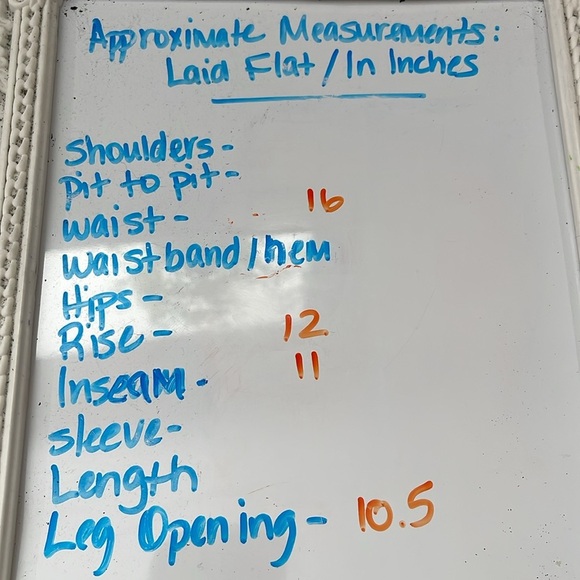 Approximate Measurements:
Laid Flat / In Inches
Shoulders -
pit to pit -
waist - 16
waistband / hem
Hips -
Rise - 12
Inseam - 11
sleeve-
Length
Leg Opening - 10.5